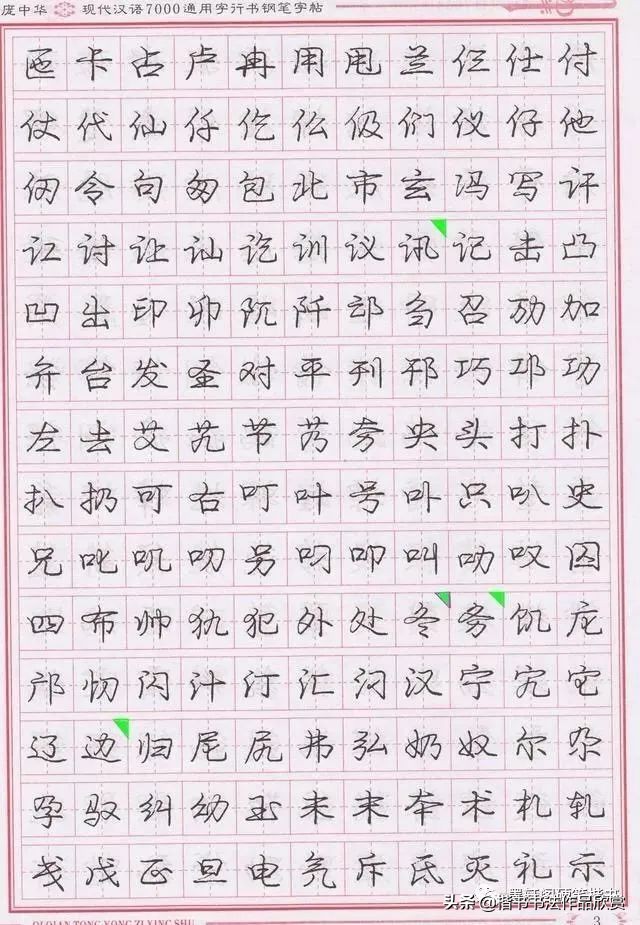 庞中华 现代汉语7000通用字行书钢笔字帖
卡占卢冉用甩兰仨仕付
仗代仙仟仡仫伋们仪仔他
仞令句匆包北市玄冯写讦
讧讨让讪讫训议讯记击凸
凹出印卯阢阡邙刍召劢加
弁台发圣对平刊邗巧邛功
左去艾艽节艿夯央头打扑
扒扔可右叮叶号卟只叭史
兄叱叽叨另叼叩叫叻叹囚
四布帅犰犯外处冬务饥庀
邝忉闪汁汀汇汈汉宁宄它
辽边归尾尻弗弘奶奴尔尕
孕驭纠幼玉未末本术札轧
戋戊正旦电氕斥氐灭礼示
头条@楷书书法作品欣赏
QIQIAN TONG YONG ZI XING SHU
3